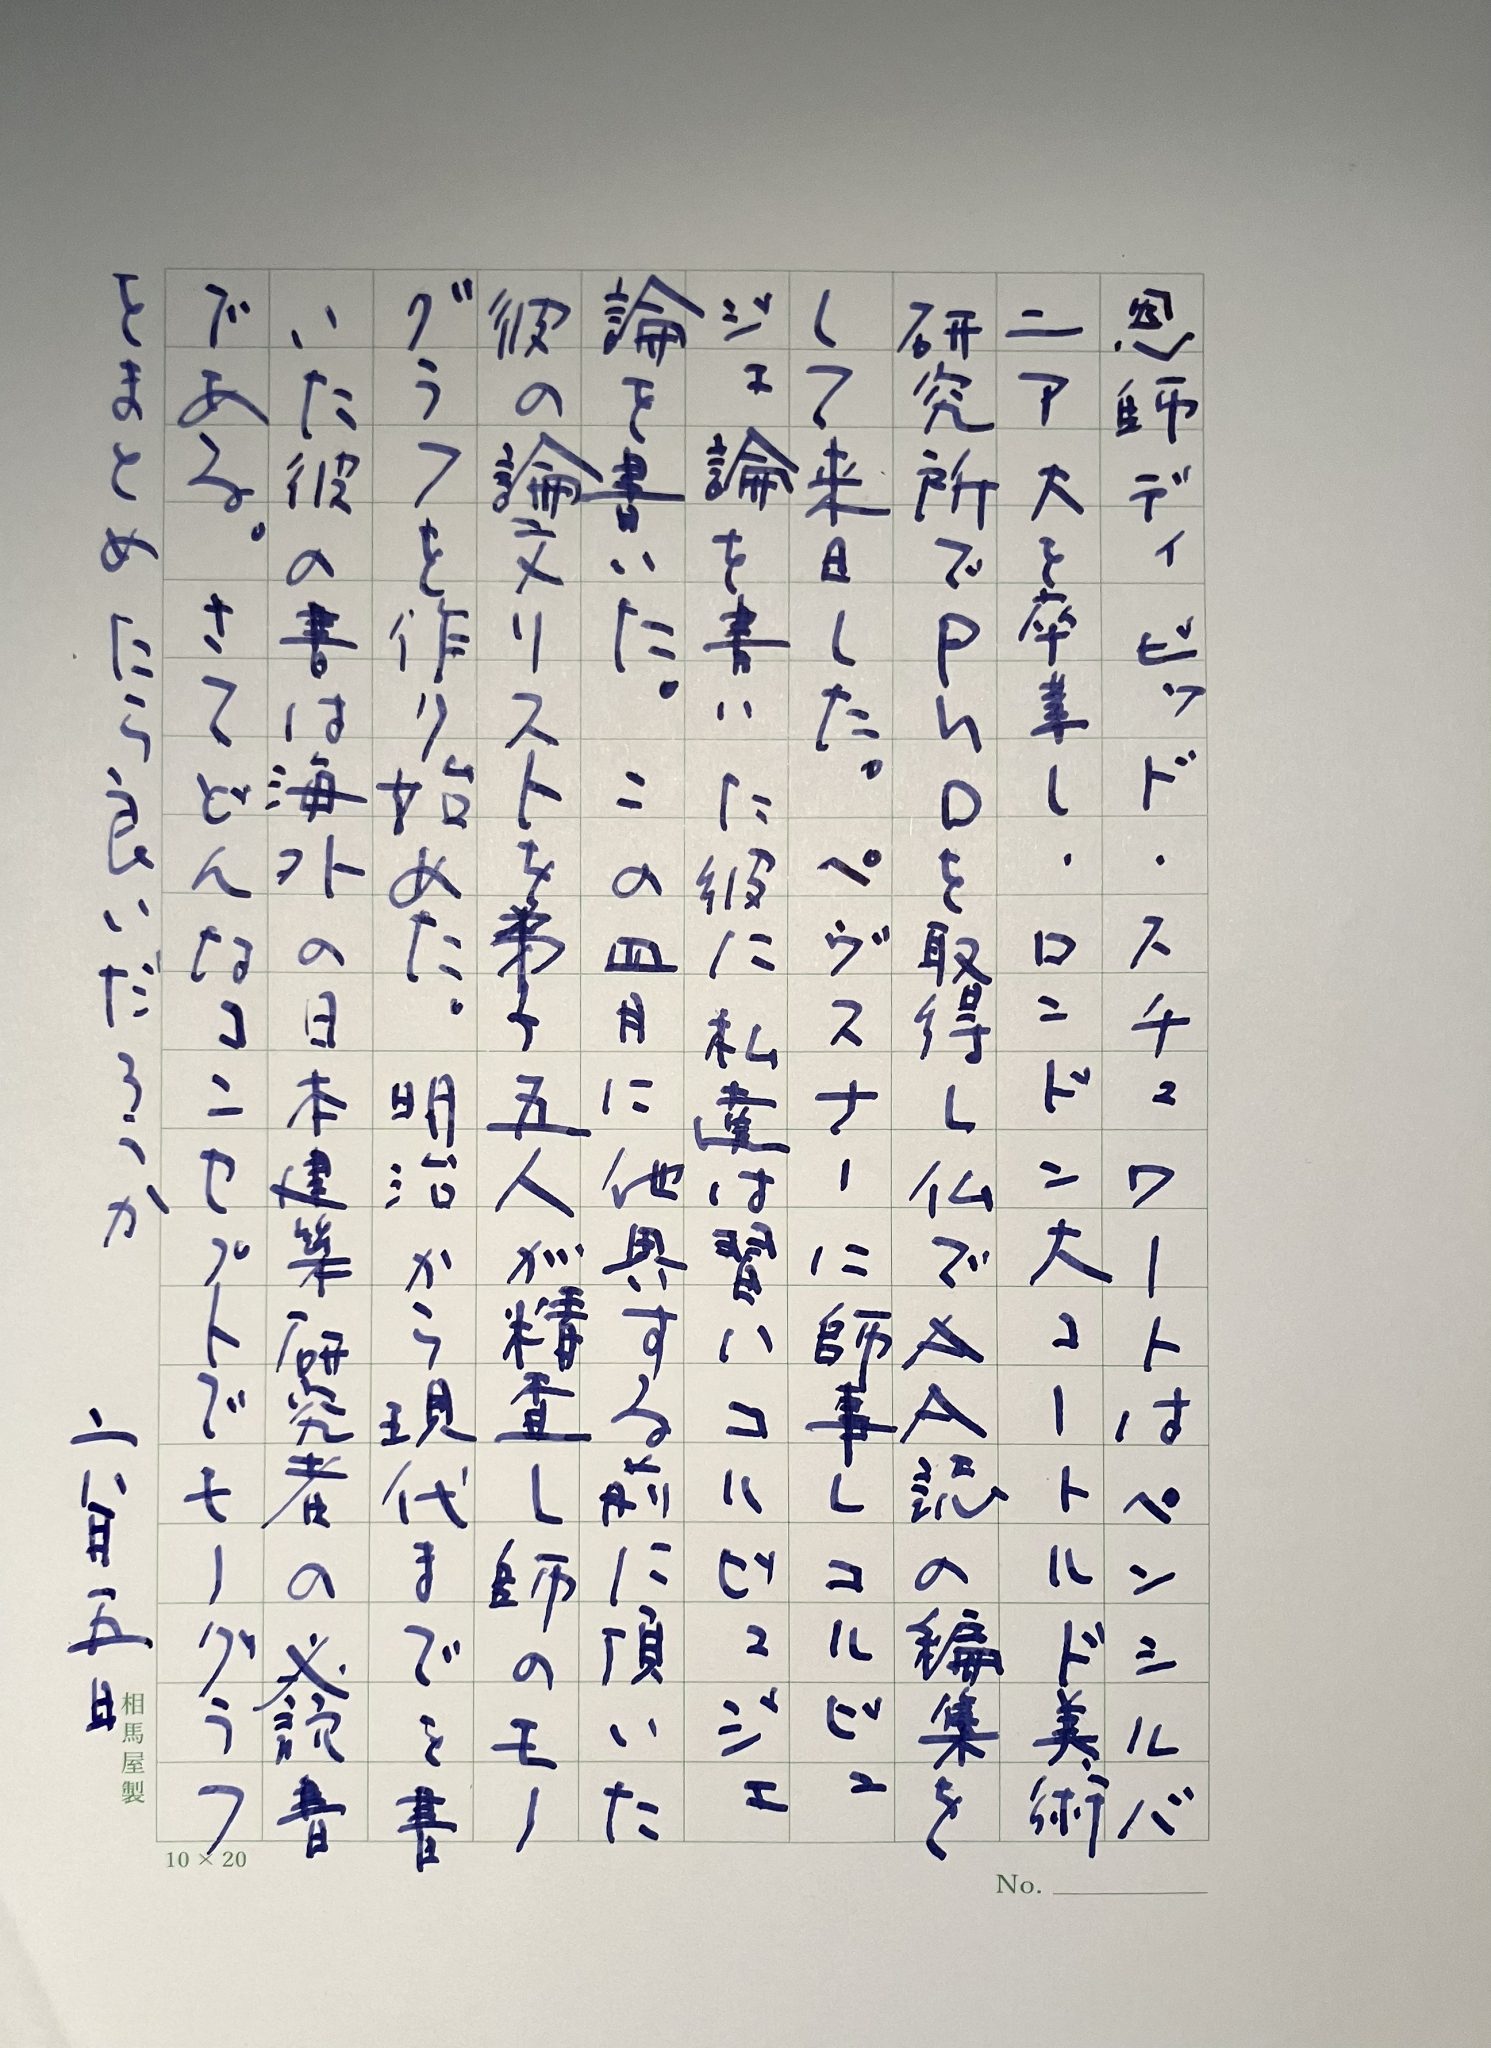 恩師ディビッド・スチュワートはペンシルバ
ニア大を卒業し、ロンドン大コートルド美術
研究所でPhDを取得し仏でAA誌の編集を
して来日した。ペヴスナーに師事しコルビュ
ジエ論を書いに彼に私達は習いコルビュジエ
論を書いた。この四月に他界する前に頂いた
彼の論文リストを弟子五人が精査し師のモノ
グラフを作り始めた。明治から現代までを書
いた彼の書は海外の日本建築研究者の必読書
である。さてどんなコンセプトでモノグラフ
をまとめたら良いだろうか
六月五日
相馬屋製
10×20
No.